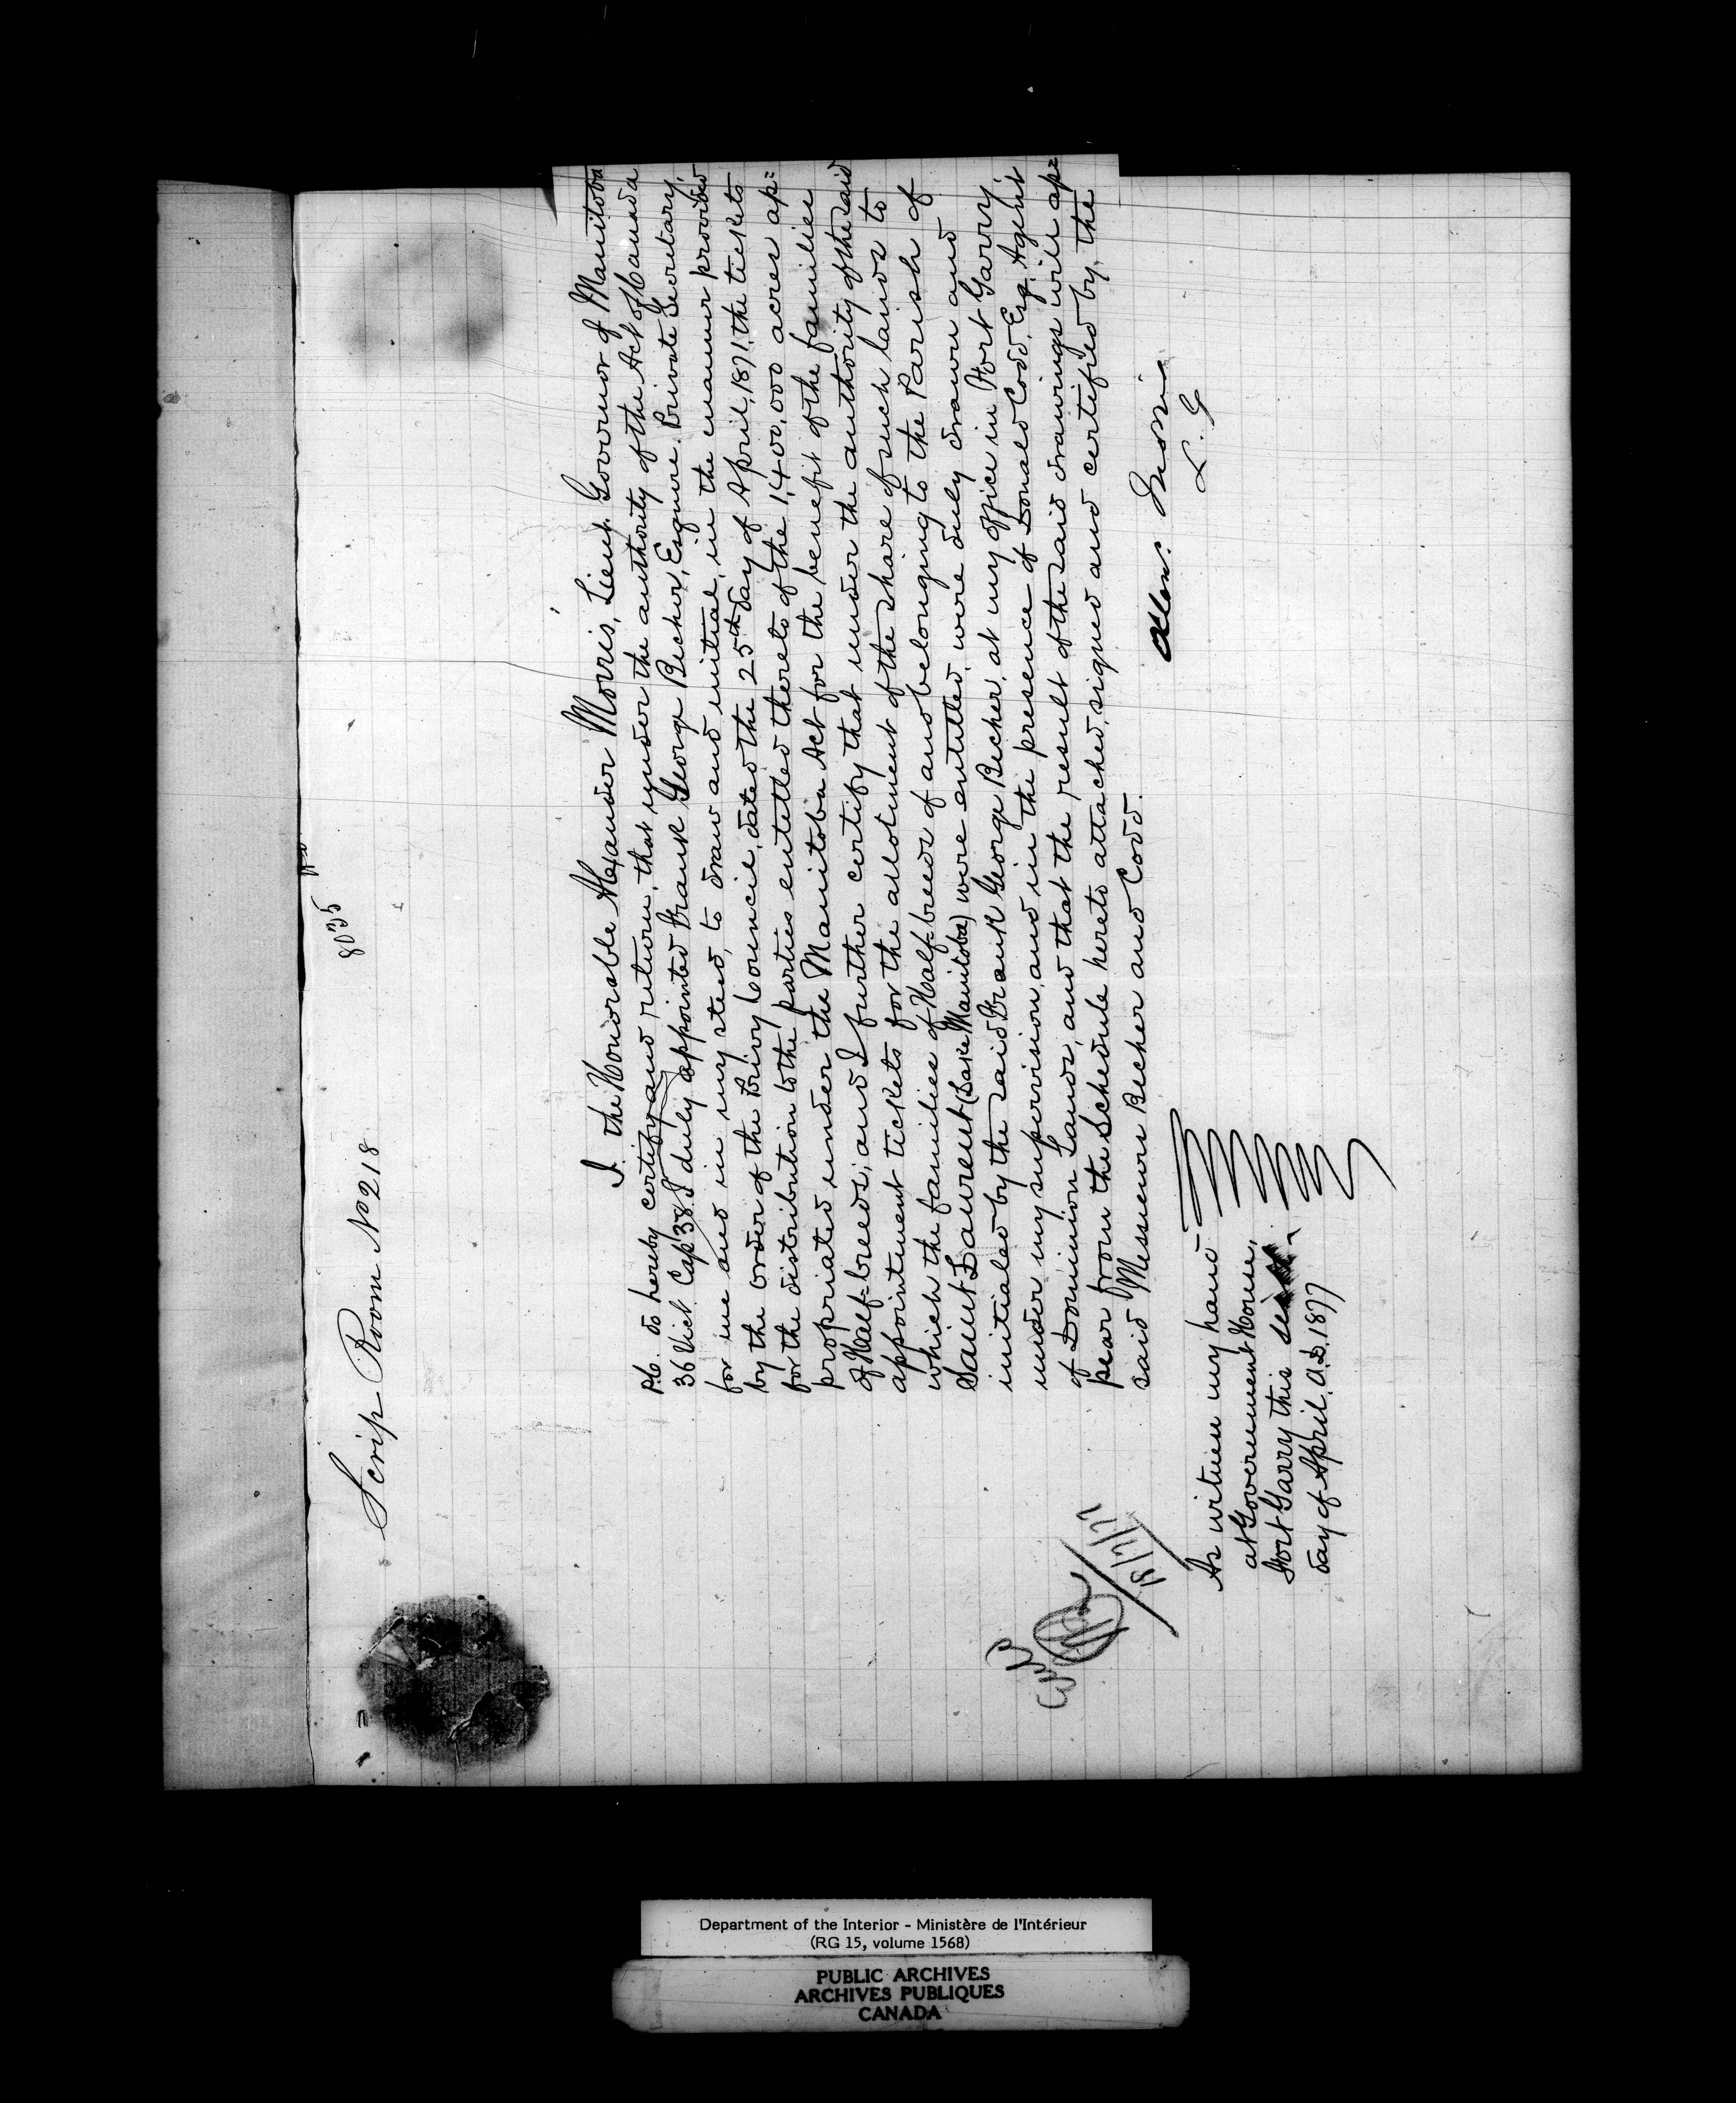 Scrip Room No 218
8035
I the Honorable Alexander Morris, Lieut. Governor of Manitoba
P.C. do hereby certify and return, that under the authority of the Act of Canada
36 Vict Cap 38. I duly appointed Frank George Becher, Esquire Private Secretary,
for me and in my stead, to draw and initial, in the manner provided
by the order of the Privy Council, dated the 25th day of April, 1871, the tickets
for the distribution to the parties entitled thereto of the 1,400,000 acres ap=
propriated under the Manitoba Act for the benefit of the families
of Half-breeds, and I further certify that under the authority of the said
appointment tickets for the allotment of the share of such lands to
which the families of Half-breeds of and belonging to the Parish of
Saint Laurent (Lake Manitoba) were entitled, were duly drawn and
initialed by the said Frank George Becher, at my office in Fort Garry,
under my supervision, and in the presence of Donald Codd, Esq. Agent
of Dominion Lands, and that the result of the said drawings will ap=
pear from the Schedule hereto attached, signed and certified by, the
said Messieurs Becher and Codd.
Alex. Morris
L. G
As witness my hand
at Government House,
Fort Garry this
day of April, A.D. 1877
Department of the Interior - Ministère de l'Intérieur
(RG 15, volume 1568)
PUBLIC ARCHIVES
ARCHIVES PUBLIQUES
CANADA